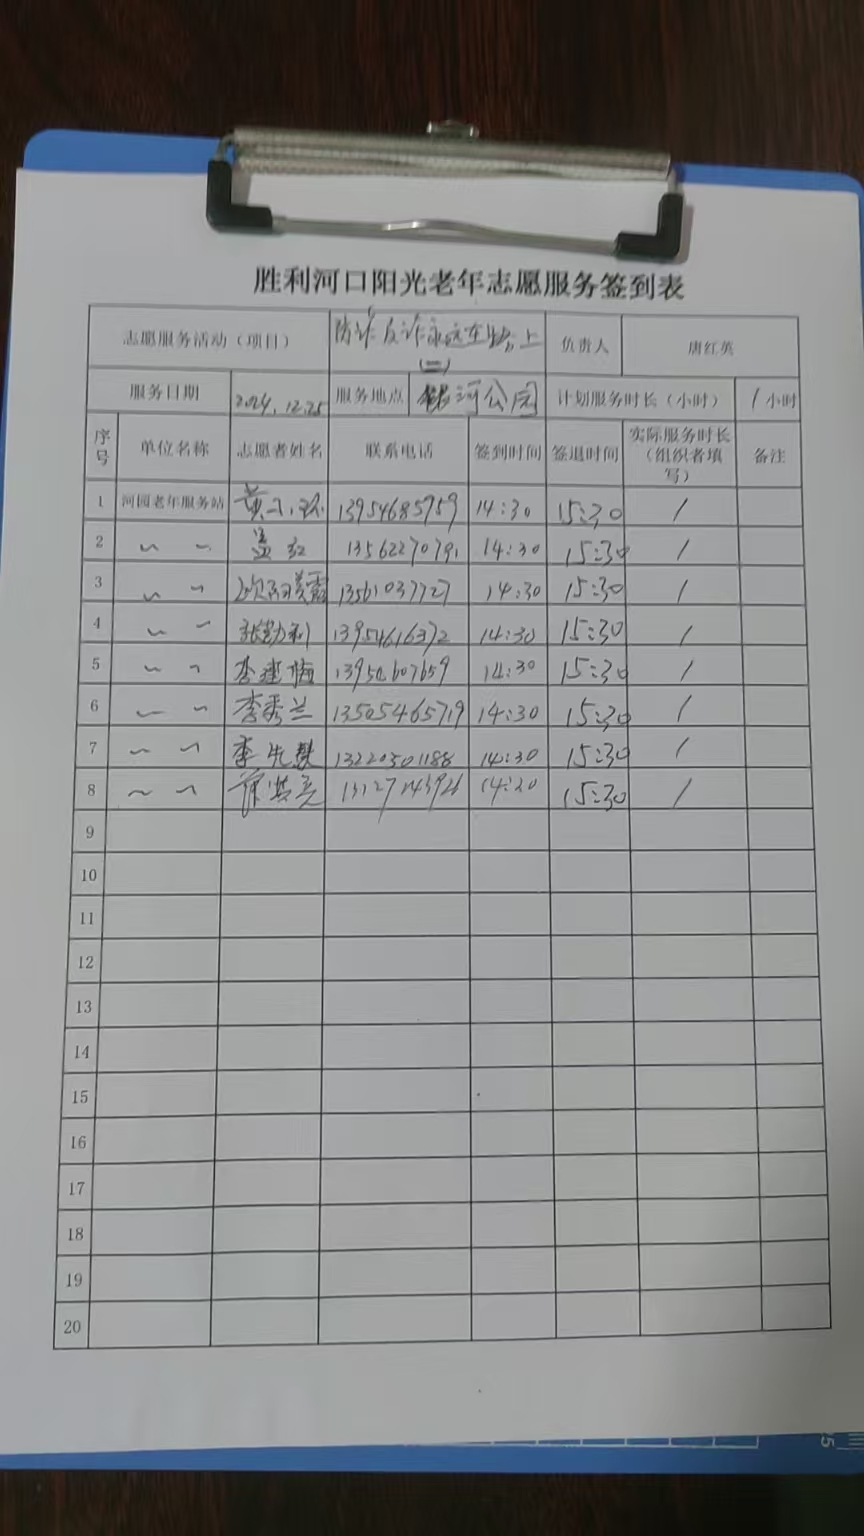 胜利河口阳光老年志愿服务签到表
志愿服务活动（项目） 防诈反诈永远在路上（二） 负责人 唐红英
服务日期 2024.12.25 服务地点 银河公园 计划服务时长（小时） 1小时
序号 单位名称 志愿者姓名 联系电话 签到时间 签退时间 实际服务时长（组织者填写） 备注
1 河园老年服务站 黄小 13954685959 14:30 15:30 1
2 〃 〃 盖红 13562270791 14:30 15:30 1
3 〃 〃 欧阳美霞 13561037727 14:30 15:30 1
4 〃 〃 张勤利 13954616372 14:30 15:30 1
5 〃 〃 李建梅 13954607659 14:30 15:30 1
6 〃 〃 李秀兰 13505465719 14:30 15:30 1
7 〃 〃 李先 13220501188 14:30 15:30 1
8 〃 〃 15:30 1
9
10
11
12
13
14
15
16
17
18
19
20